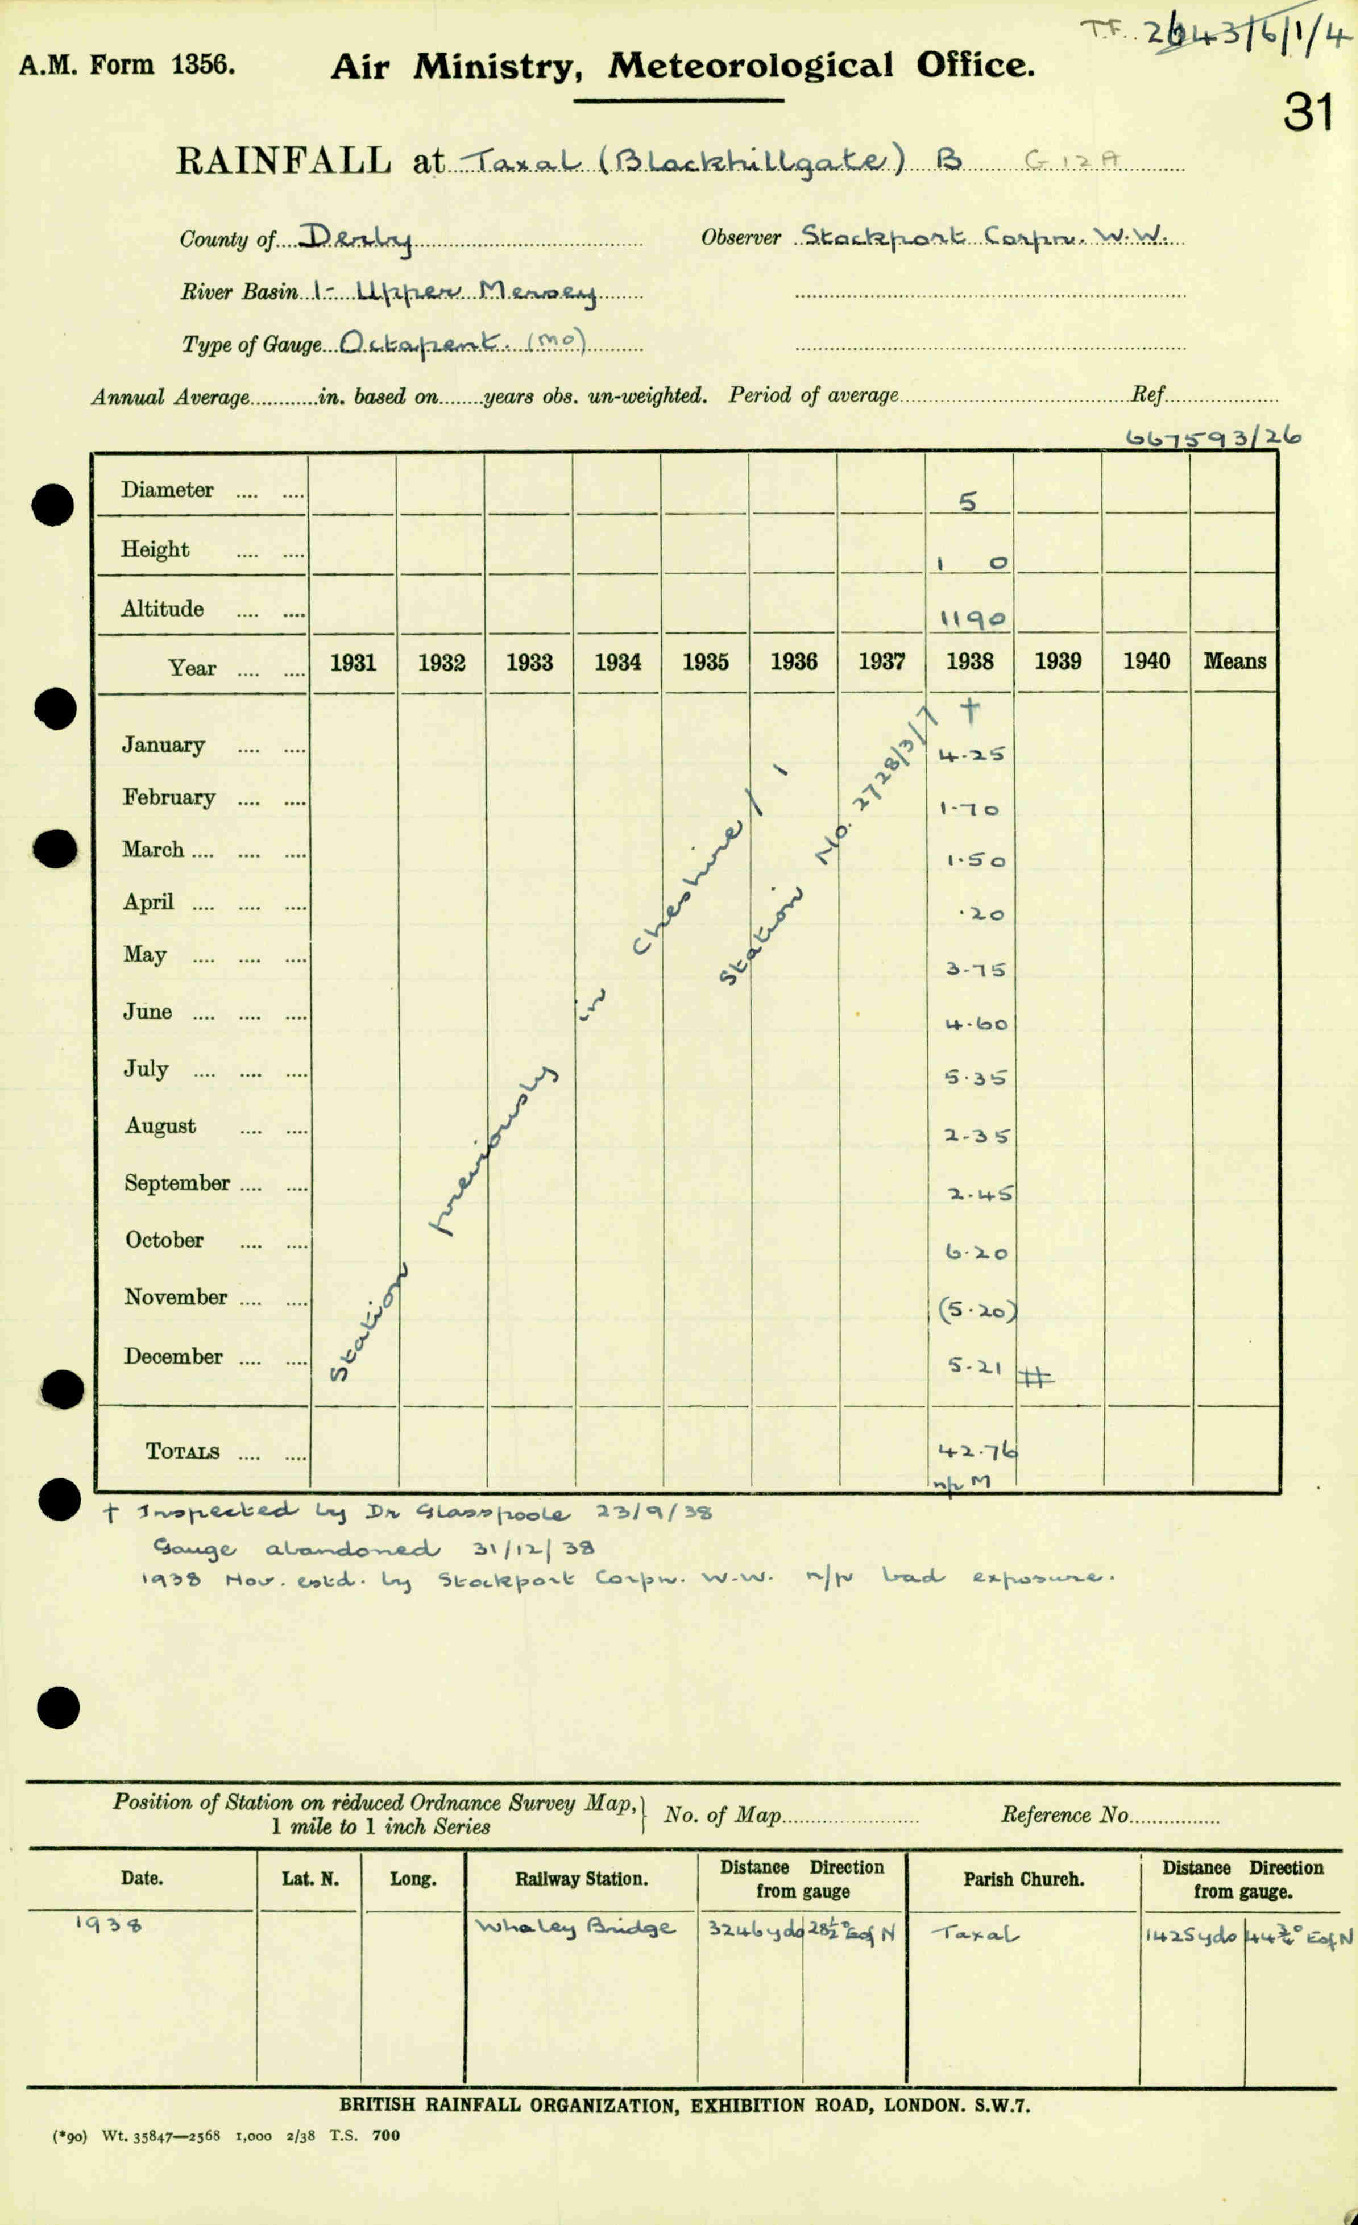 T.F. 2643/6/1/4
A.M. Form 1356. Air Ministry, Meteorological Office.
31
RAINFALL at Taxal (Blackhillgate) B G12A
County of Derby Observer Stockport Corpn. W.W.
River Basin 1- Upper Mersey
Type of Gauge Octapent. (MO)
Annual Average............in. based on........years obs. un-weighted. Period of average........Ref........
667593/26
Diameter .... .... 5
Height .... .... 1 0
Altitude .... .... 1190
Year .... .... 1931 1932 1933 1934 1935 1936 1937 1938 1939 1940 Means
†
January .... .... 4.25
February .... .... 1.70
March .... .... .... 1.50
April .... .... .... .20
May .... .... .... 3.75
June .... .... .... 4.60
July .... .... .... 5.35
August .... .... 2.35
September .... .... 2.45
October .... .... 6.20
November .... .... (5.20)
December .... .... 5.21 #
Station previously in Cheshire / 1
Station No. 2728/3/7
TOTALS .... .... 42.76
n/p M
† Inspected by Dr Glasspoole 23/9/38
Gauge abandoned 31/12/38
1938 Nov. estd. by Stockport Corpn. W.W. n/p bad exposure.
Position of Station on reduced Ordnance Survey Map, } No. of Map........ Reference No........
1 mile to 1 inch Series
Date. Lat. N. Long. Railway Station. Distance Direction from gauge Parish Church. Distance Direction from gauge.
1938 Whaley Bridge 3246 yds 28½° E of N Taxal 1425 yds 44¾° E of N
BRITISH RAINFALL ORGANIZATION, EXHIBITION ROAD, LONDON. S.W.7.
(*90) Wt. 35847—2568 1,000 2/38 T.S. 700